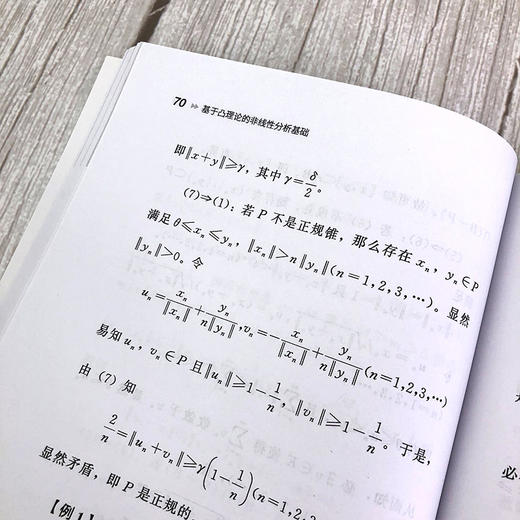 70 ▸▸ 基于凸理论的非线性分析基础
即‖x+y‖≥γ, 其中 γ=δ/2。
(7)⇒(1): 若 P 不是正规锥, 那么存在 xₙ, yₙ∈P
满足 θ≤xₙ≤yₙ, ‖xₙ‖>n‖yₙ‖(n=1,2,3,…)。显然
‖yₙ‖>0。令
uₙ=xₙ/‖xₙ‖+yₙ/(n‖yₙ‖), vₙ=-xₙ/‖xₙ‖+yₙ/(n‖yₙ‖)(n=1,2,3,…)
易知 uₙ, vₙ∈P 且‖uₙ‖≥1-1/n, ‖vₙ‖≥1-1/n。于是,
由 (7) 知
2/n=‖uₙ+vₙ‖≥γ(1-1/n)(n=1,2,
显然矛盾, 即 P 是正规的
【例1
必